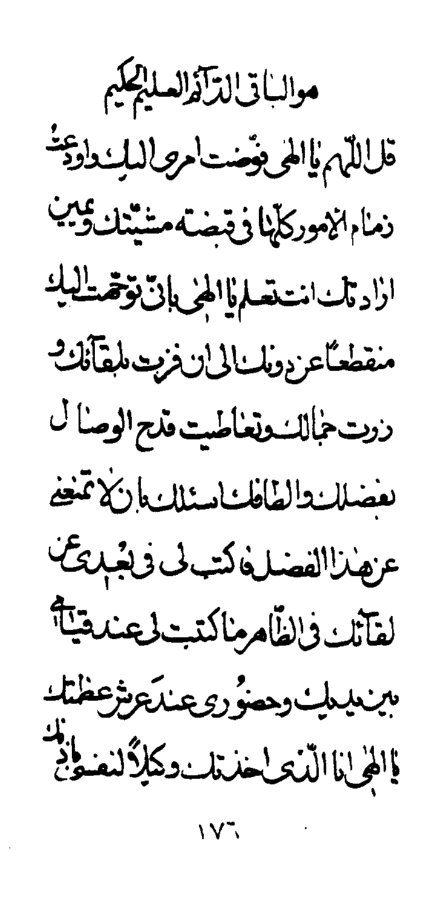 هو الباقی الدّآئم العلیم الحکیم
قل اللّهم یا الهی فوّضت امری الیك و اودعتُ
زمام الامور کلّها فی قبضته مشیّتك و یمین
ارادتك انت تعلم یا الهی بانّی توجّهت الیك
منقطعاً عن دونك الی ان فزت بلقآئك و
زرت جمالك و تعاطیت قدح الوصال
بفضلك و الطافك اسئلك بان لا تمنعنی
عن هذا الفضل فاکتب لی فی بُعْدی عن
لقآئك فی الظّاهر ما کتبت لی عند قیامی
بین یدیك و حضوُری عندَ عرش عظمتك
یا الهی انا الّذی اخذتك وکیلاً لنفسی باذنك
۱۷٦